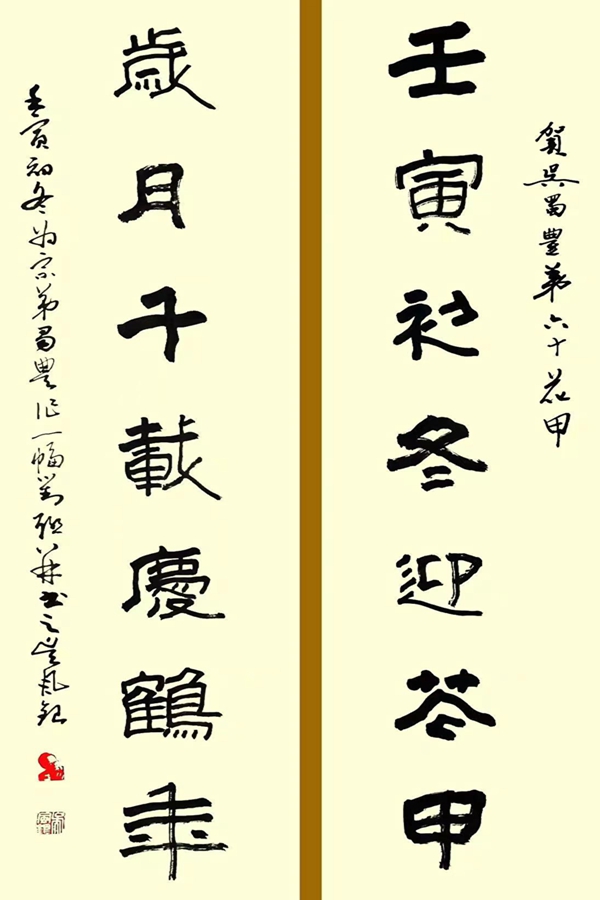 賀吳蜀豐弟六十花甲
壬寅初冬迎花甲
歲月千載慶鶴年
壬寅初冬为宗弟蜀豐作一幅對联并书之